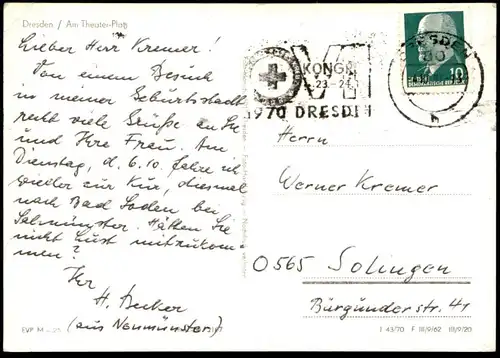 Dresden / Am Theater-Platz
Lieber Herr Kremer!
Von einem Besuch
in meiner Geburtsstadt
recht viele Grüße an Sie
und Ihre Frau. Am
Dienstag, d. 6.10. fahre ich
wieder zur Kur, diesmal
nach Bad Soden bei
Salmünster. Hätten Sie
nicht Lust mitzukom-
men?
Ihr
H. Becker
(aus Neumünster)
EVP M
VI
KONGR
23.-2
1970 DRESD
DRESDEN
10
h
Herrn
Werner Kremer
0565 Solingen
Burgunder str. 41
I 43/70 F III/9/62 III/9/20